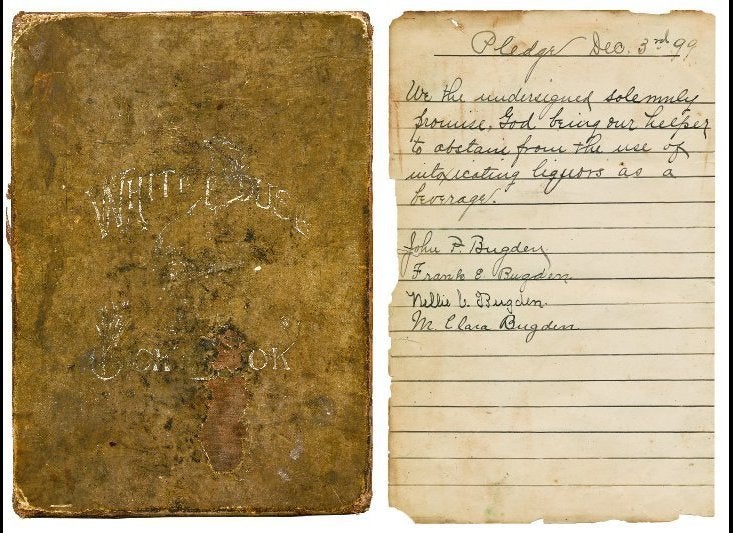 WHITE HOUSE
COOK BOOK
Pledge Dec. 3rd 99
We the undersigned solemnly
promise, God being our helper
to abstain from the use of
intoxicating liquors as a
beverage.
John P. Bugden
Frank E Bugden
Nellie V. Bugden.
M. Clara Bugden